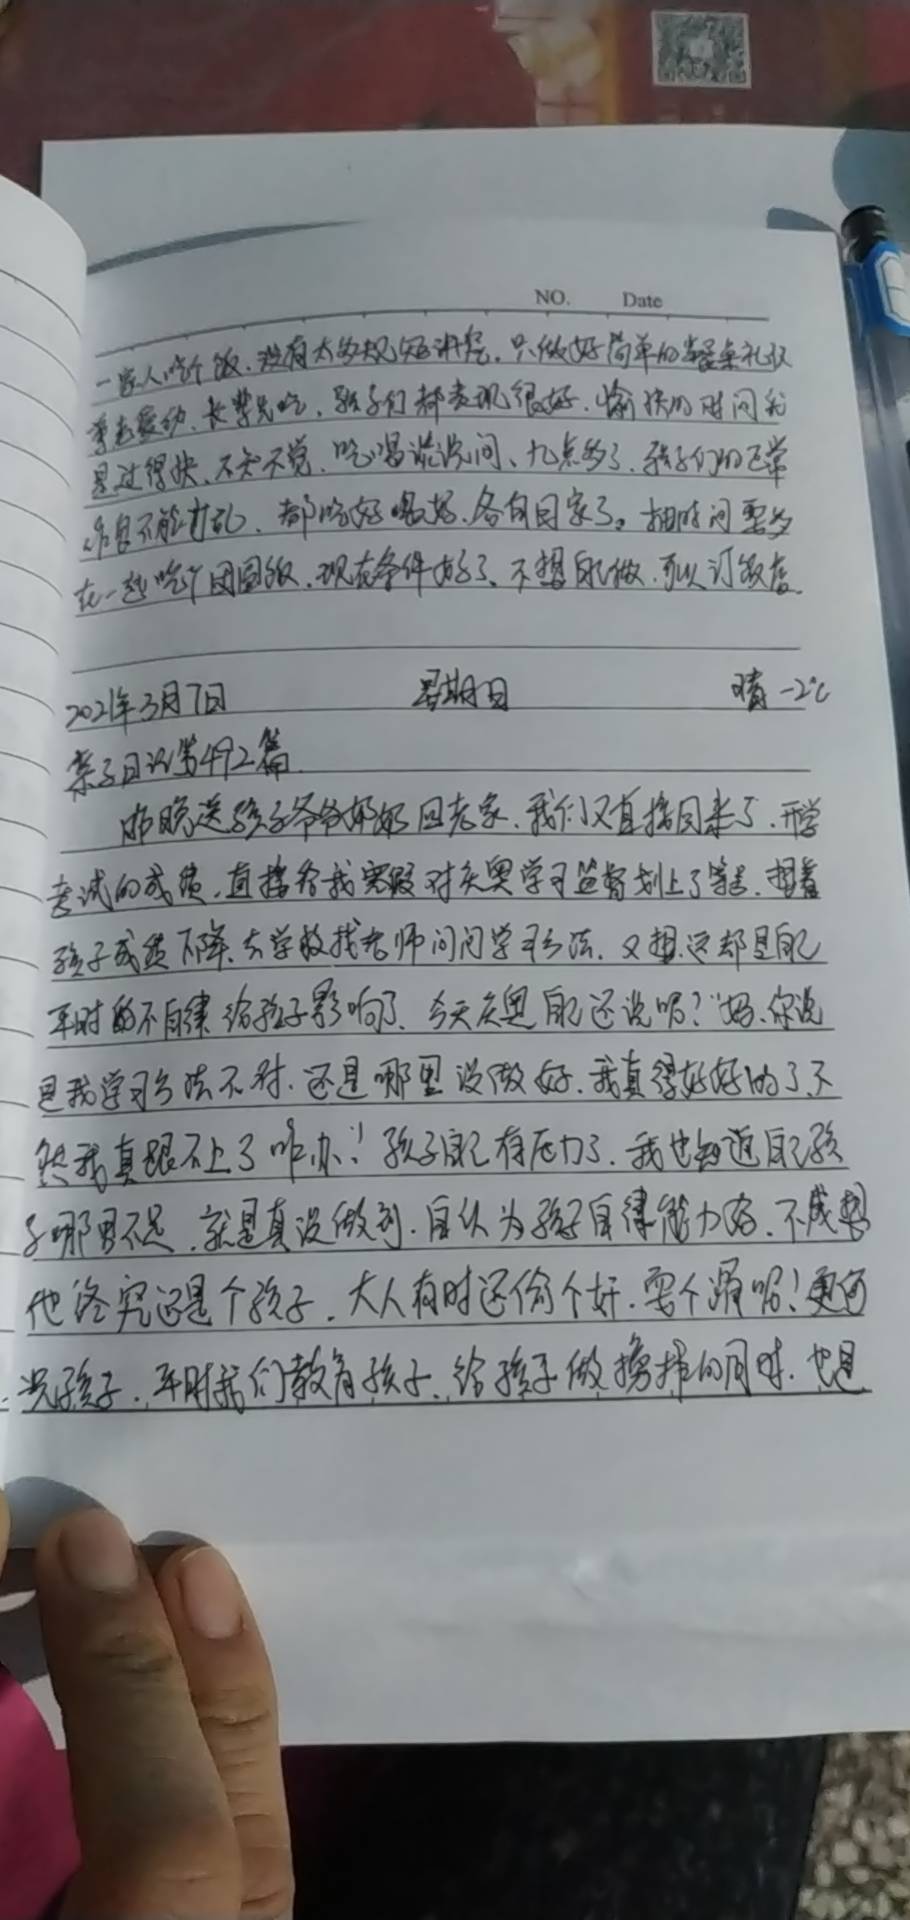 NO. Date
一家人吃个饭、没有太多规矩讲究、只做好简单的餐桌礼仪
尊老爱幼、长辈先吃、孩子们都表现很好、愉快的时间总
是过得快、不知不觉、吃喝说说间、九点多了、孩子们的正常
作息不能打乱、都吃好喝好、各自回家了。抽时间要多
在一起吃个团圆饭、现在条件好了、不想自己做、可以订饭店
2021年3月7日 星期日 晴 -2℃
亲子日记第492篇
昨晚送孩子爷爷奶奶回老家、我们又直接回来了、开学
考试的成绩、直接给我寒假对庆奥学习监督划上了等号、想着
孩子成绩下降、去学校找老师问问学习方法、又想这都是自己
平时的不自律给孩子影响了、今天庆奥自己还说呢？“妈、你说
是我学习方法不对、还是哪里没做好、我真得好好的了、不
然我真跟不上了咋办！孩子自己有压力了、我也知道自己孩
子哪里不足、就是真没做到、自认为孩子自律能力强、不成想
他终究还是个孩子、大人有时还偷个奸、耍个滑呢！更何
况孩子、平时我们教育孩子、给孩子做榜样的同时、也是